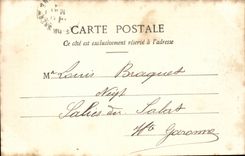 CARTE POSTALE
Ce côté est exclusivement réservé à l'adresse
Mr Louis Braquet
Negt
Salies du Salat
Hte Garonne